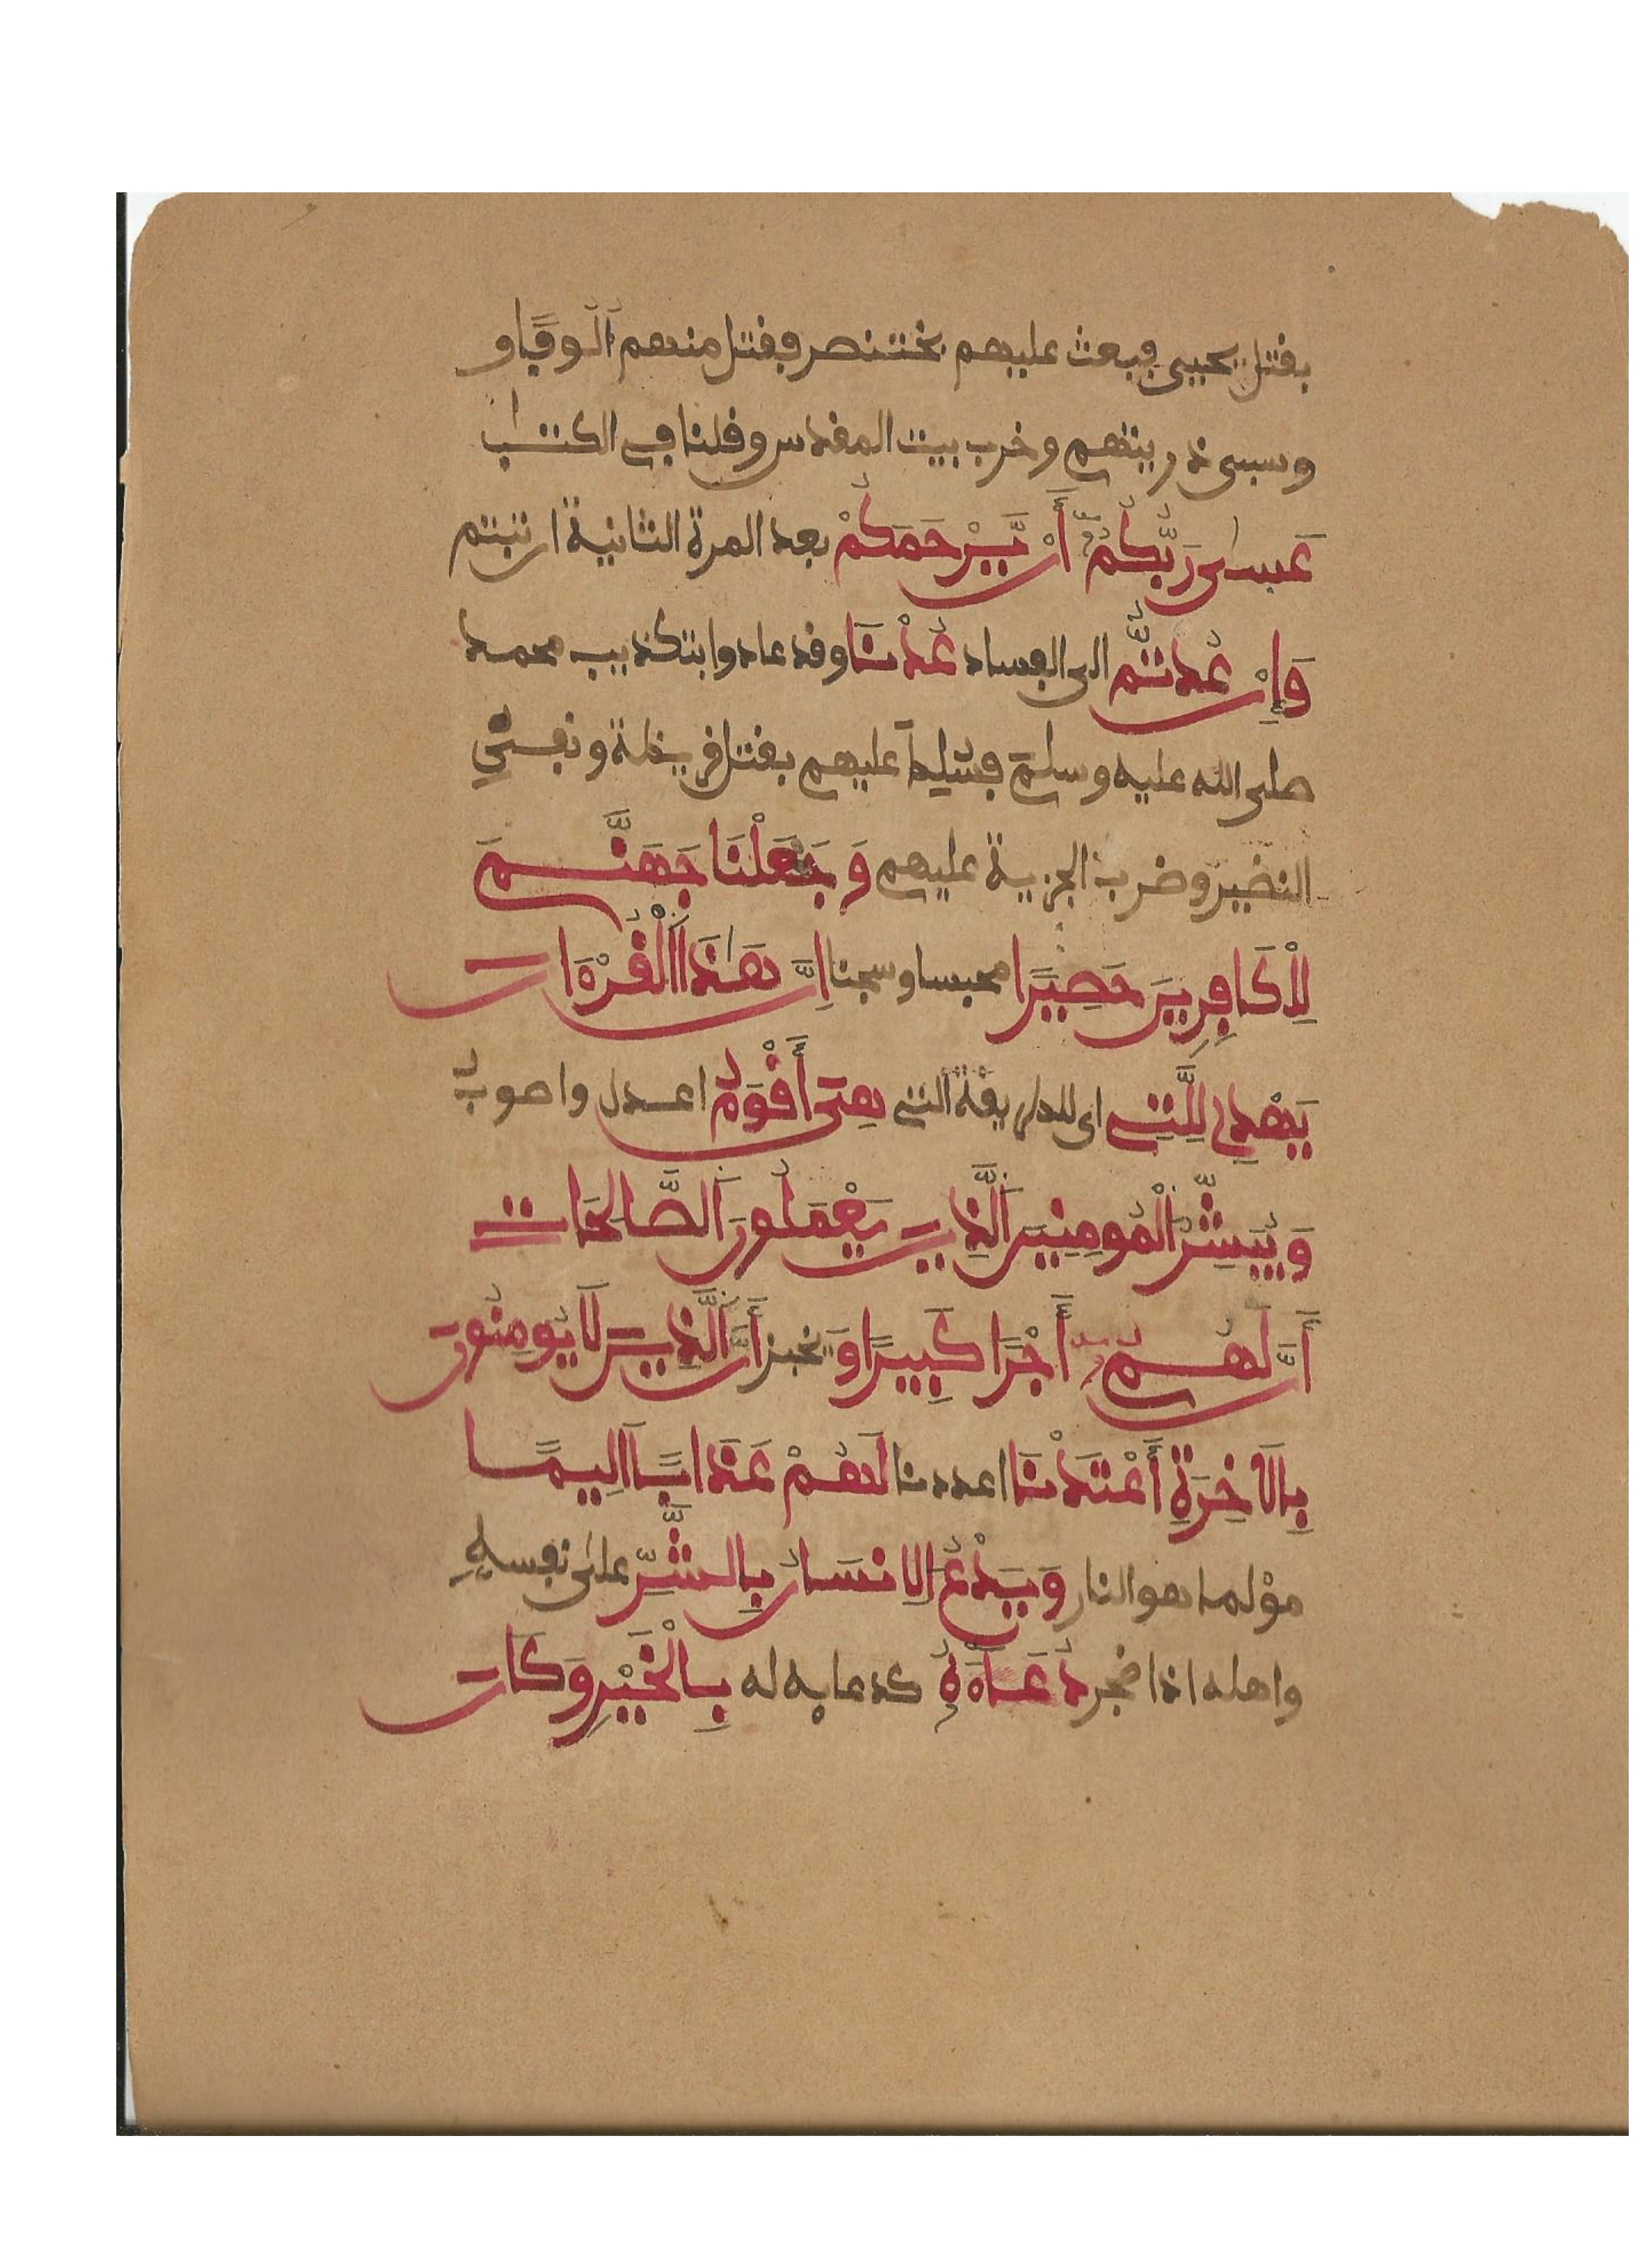 بقتل يحيى فبعث عليهم بختنصر فقتل منهم ألوفا و
وسبى ذريتهم وخرب بيت المقدس وقلنا في الكتٰب
عَسىٰ رَبُّكُمْ أَنْ يَّرْحَمَكُمْ بعد المرة الثانية ان تبتم
وَإِنْ عُدتُّمْ الى الفساد عُدْنَا وقد عادوا بتكذيب محمد
صلى الله عليه وسلم فسلط عليهم بقتل قريظة ونفي
النضير وضرب الجزية عليهم وَجَعَلْنَا جَهَنَّمَ
لِلْكَافِرِينَ حَصِيرًا محبسا وسجنا اِنَّ هَٰذَا اَلْقُرْءَانَ
يَهْدِي لِلَّتِي اى للطريقة التي هِيَ أَقْوَمُ اعدل واصوب
وَيُبَشِّرُ الْمُومِنِينَ اَلَّذِينَ يَعْمَلُونَ اَلصَّالِحَاتِ
أَنَّ لَهُمْ أَجْرًا كَبِيرًا وَ يخبر أَنَّ اَلَّذِينَ لَا يُومِنُونَ
بِالَاخِرَةِ أَعْتَدْنَا اعددنا لَهُمْ عَذَابًا اَلِيمًا
مؤلما هو النار وَيَدْعُ الِانسَانُ بِالشَّرِّ على نفسهِ
واهله اذا ضجر دُعَآءَهُ كدعايه له بِالْخَيْرِ وَكَانَ